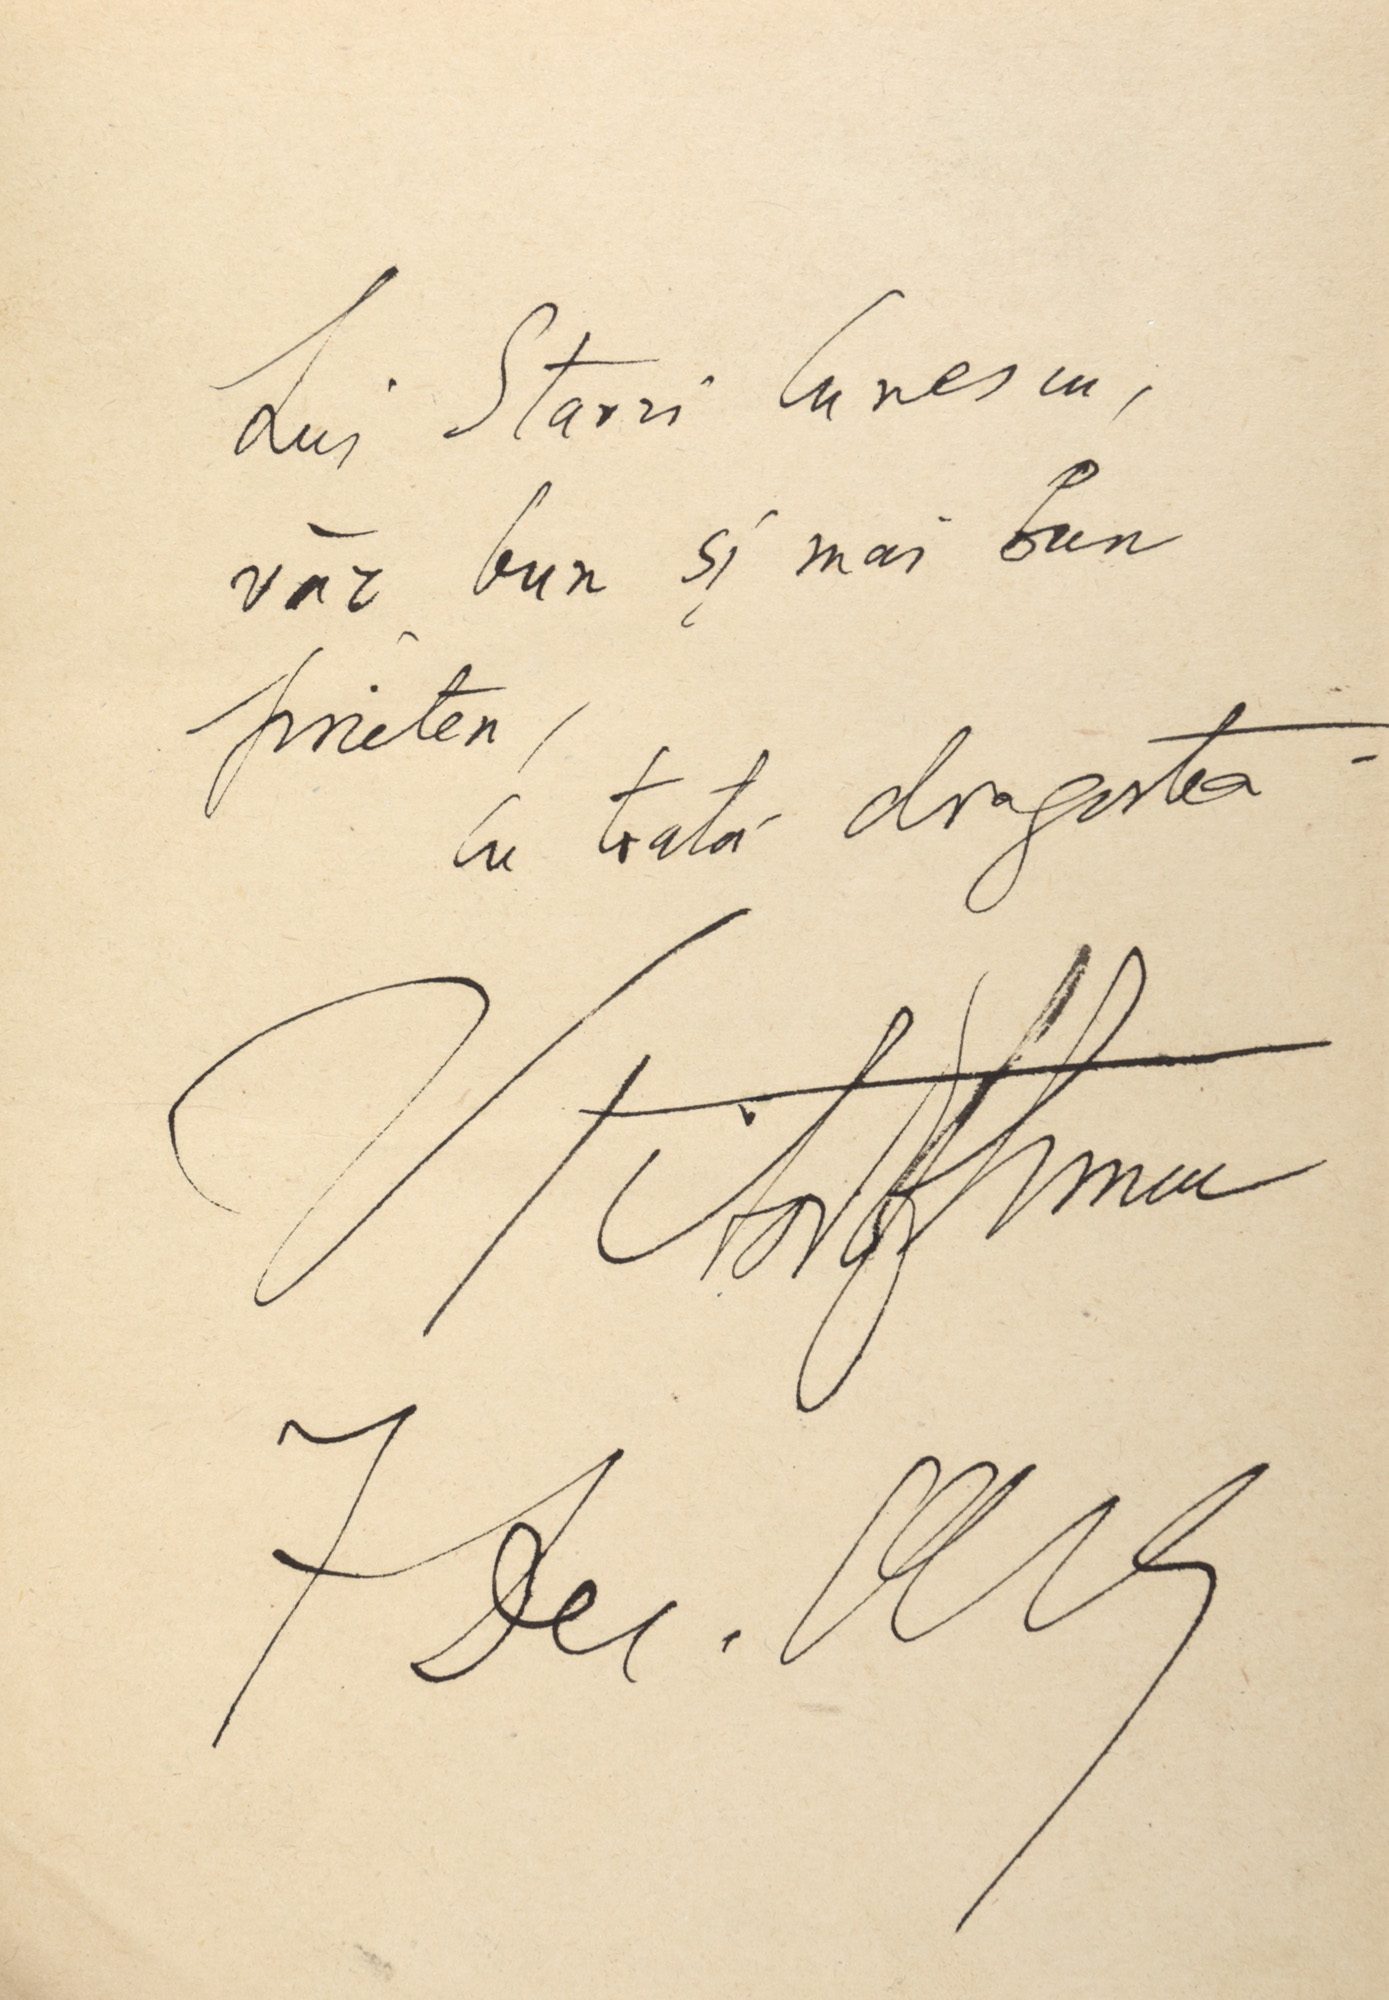 Lui Stavri Cunescu,
văr bun și mai bun
prieten,
cu toată dragostea -
Victor Eftimiu
7 Dec.